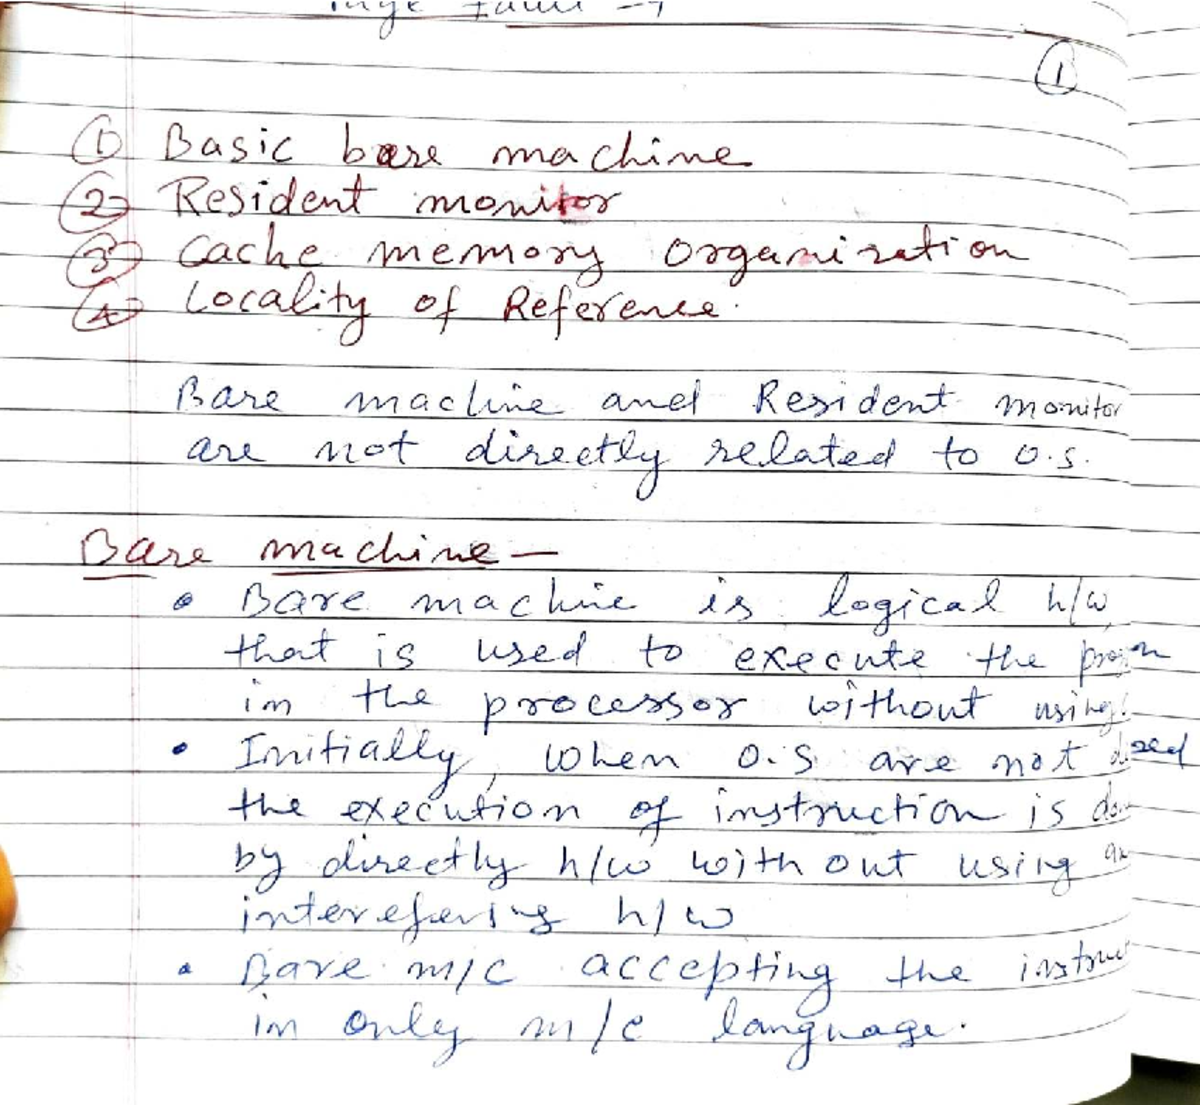 ①
① Basic bare machine
② Resident monitor
③ Cache memory organization
④ Locality of Reference.
Bare machine and Resident monitor
are not directly related to O.S.
Bare machine —
• Bare machine is logical h/w
that is used to execute the
in the processor without using
• Initially, when O.S are not
the execution of instruction is
by directly h/w with out using
h/w
• Bare m/c accepting the
in only m/c language.